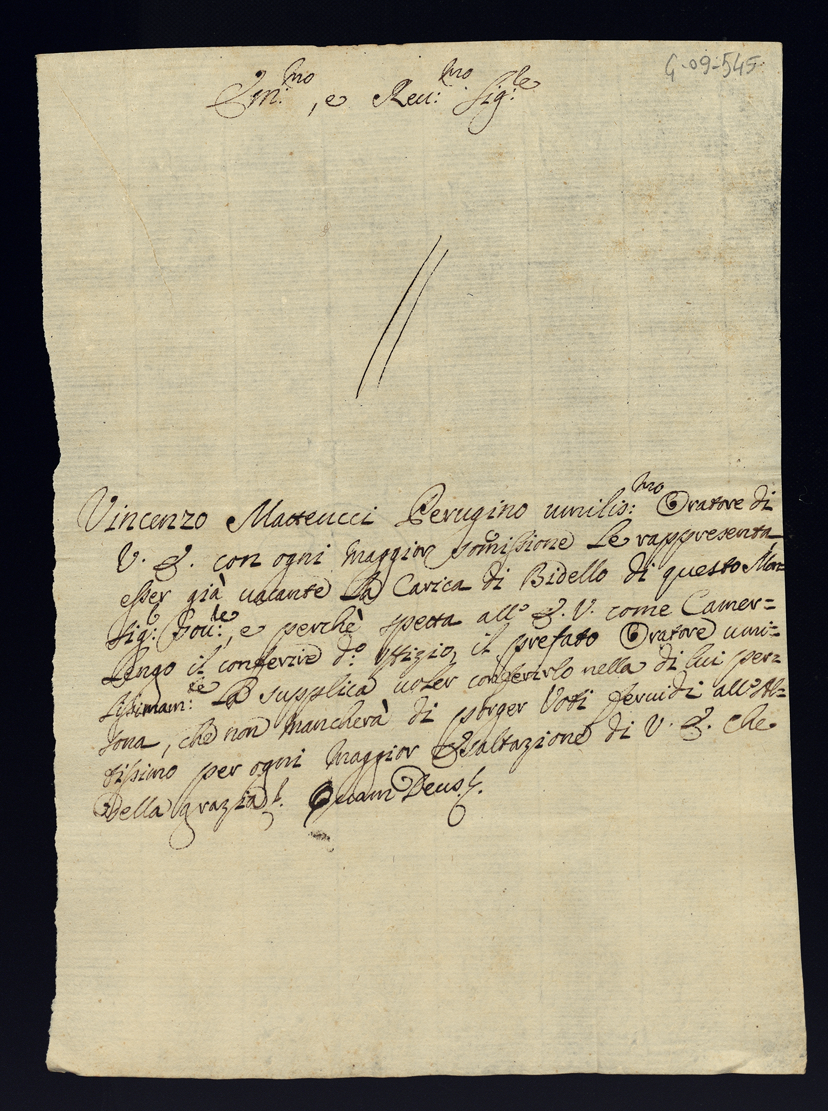 G-09-545.
Em:mo, e Reu:mo Sig:le
Vincenzo Matteucci Perugino umilis:mo Oratore di
V. E. con ogni maggior somissione Le rappresenta
esser già uacante La Carica di Bidello di questo Mon=
Sig:e Gou:le, e perchè spetta all' E. V. come Camer=
Lengo il conferire d:o Uffizio, il prefato Oratore umi=
Lissimam:te La supplica uoler conferirlo nella di lui per=
sona, che non mancherà di porger Voti feruidi all' Al=
tissimo per ogni maggior Esaltazione di V. E. Che
Della grazia &. Quam Deus &.